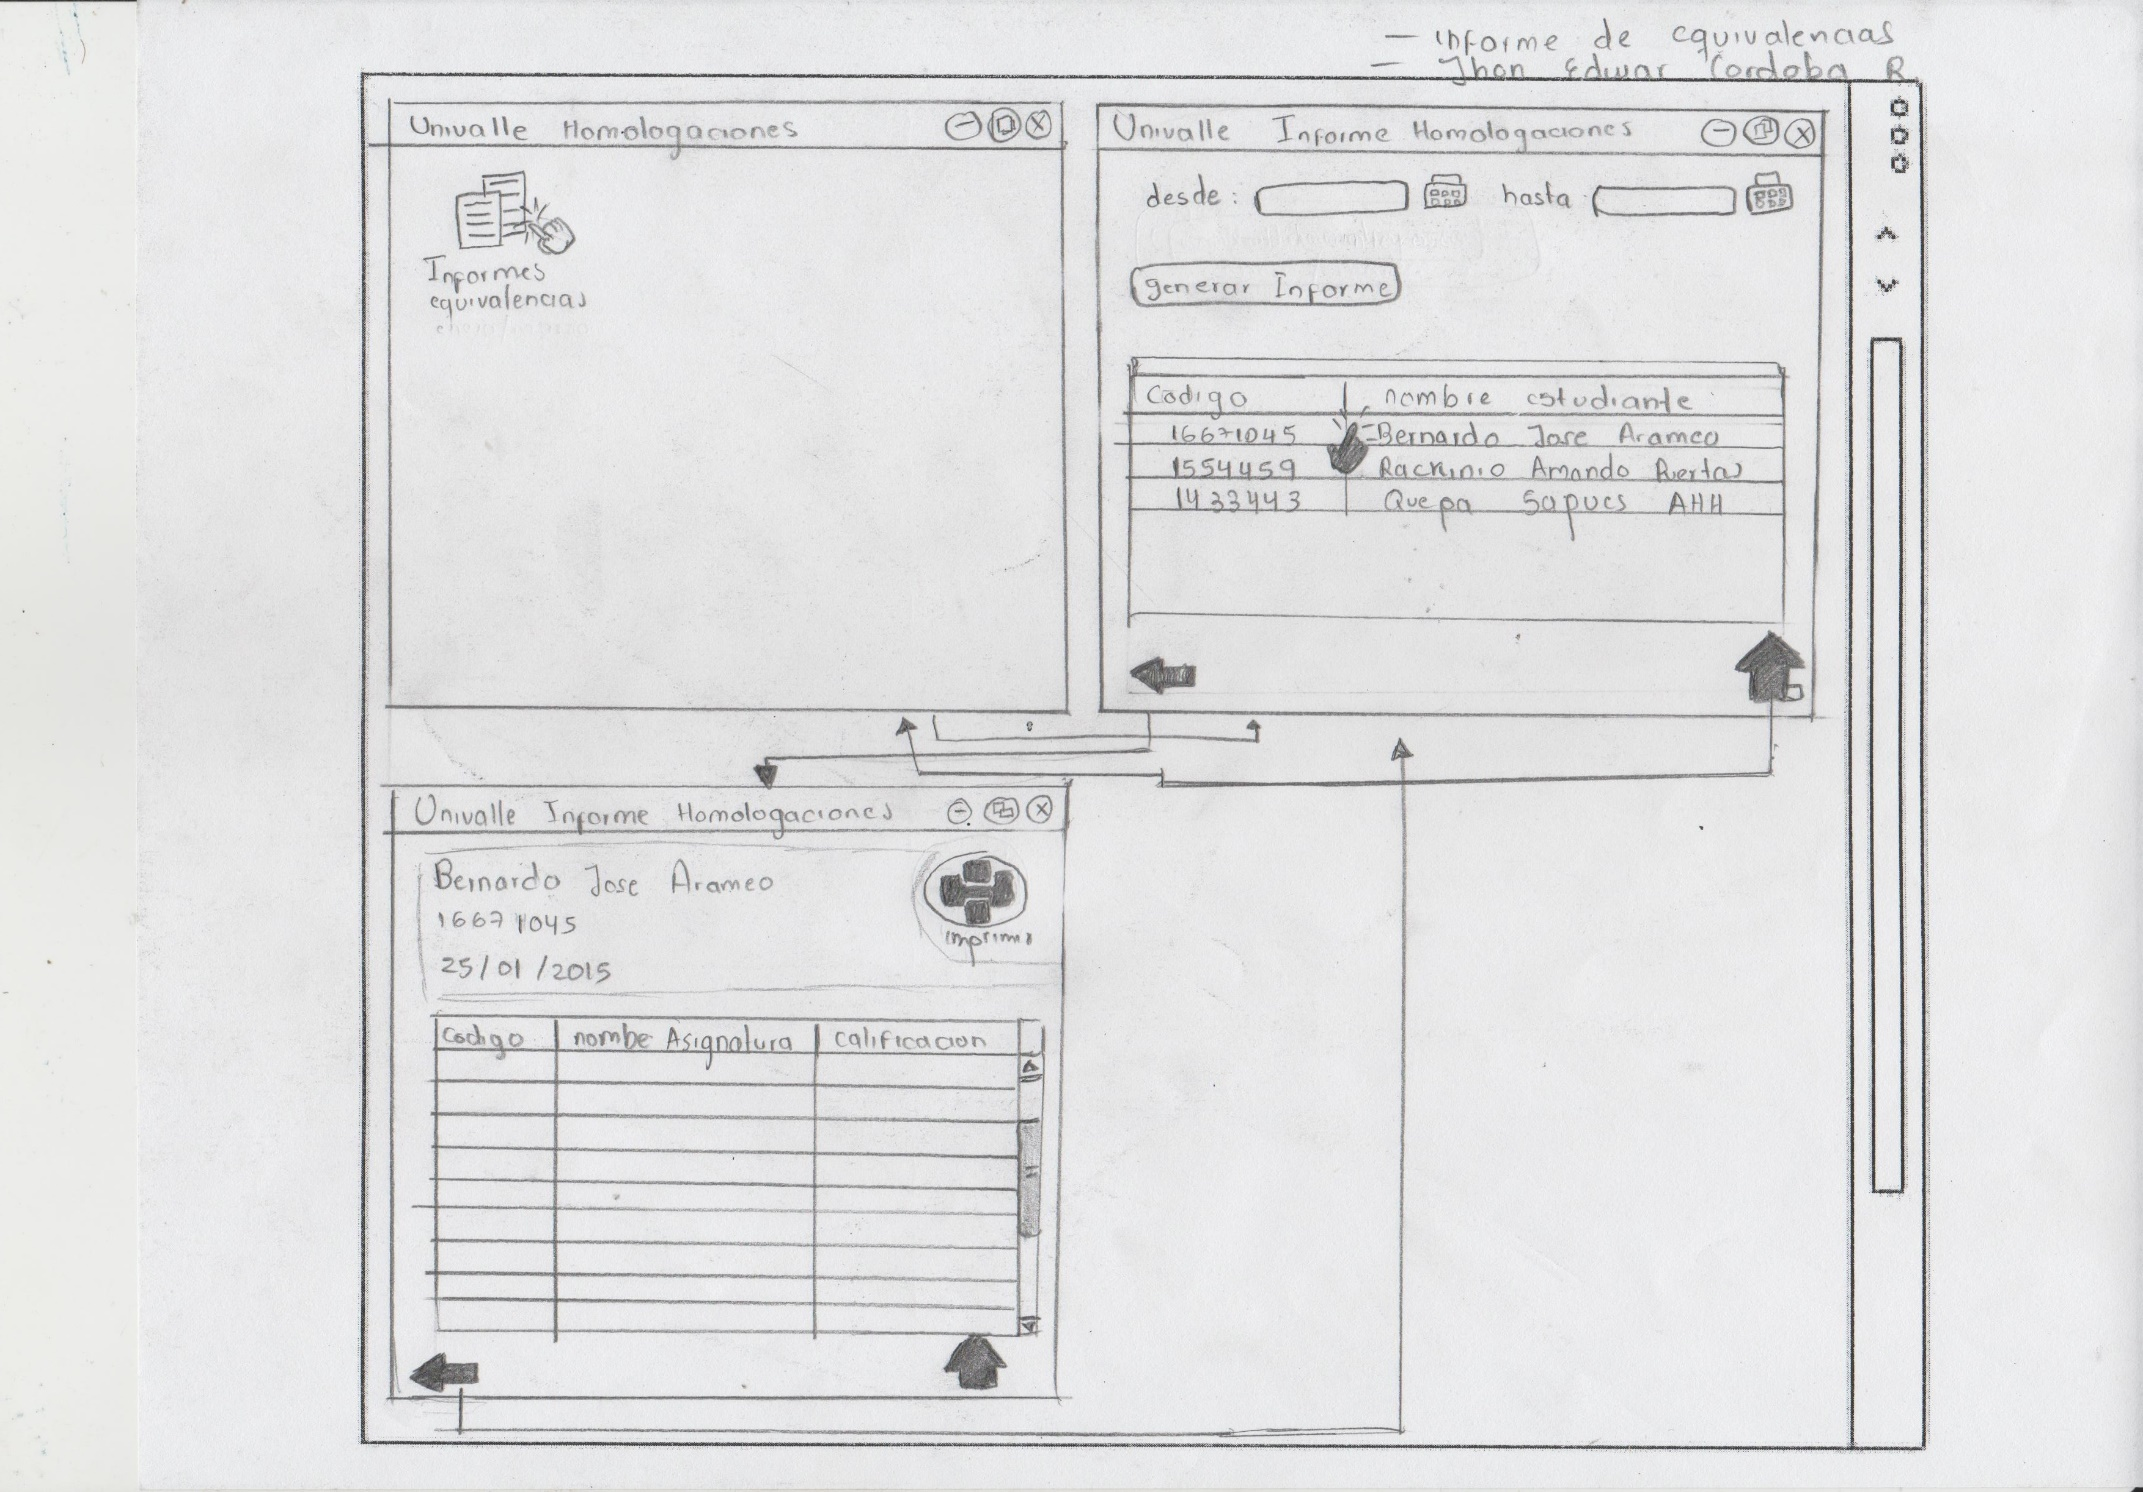 — informe de equivalencias
— Jhon Edwar Cordoba R
Univalle Homologaciones
Informes
equivalencias
Univalle Informe Homologaciones
desde: hasta
generar Informe
Codigo nombre estudiante
16671045 Bernardo Jose Arameo
1554459 Amando
1433443 Quepa Sapues AHH
Univalle Informe Homologaciones
Bernardo Jose Arameo
16671045
25/01/2015
imprimir
codigo nombe Asignatura calificacion